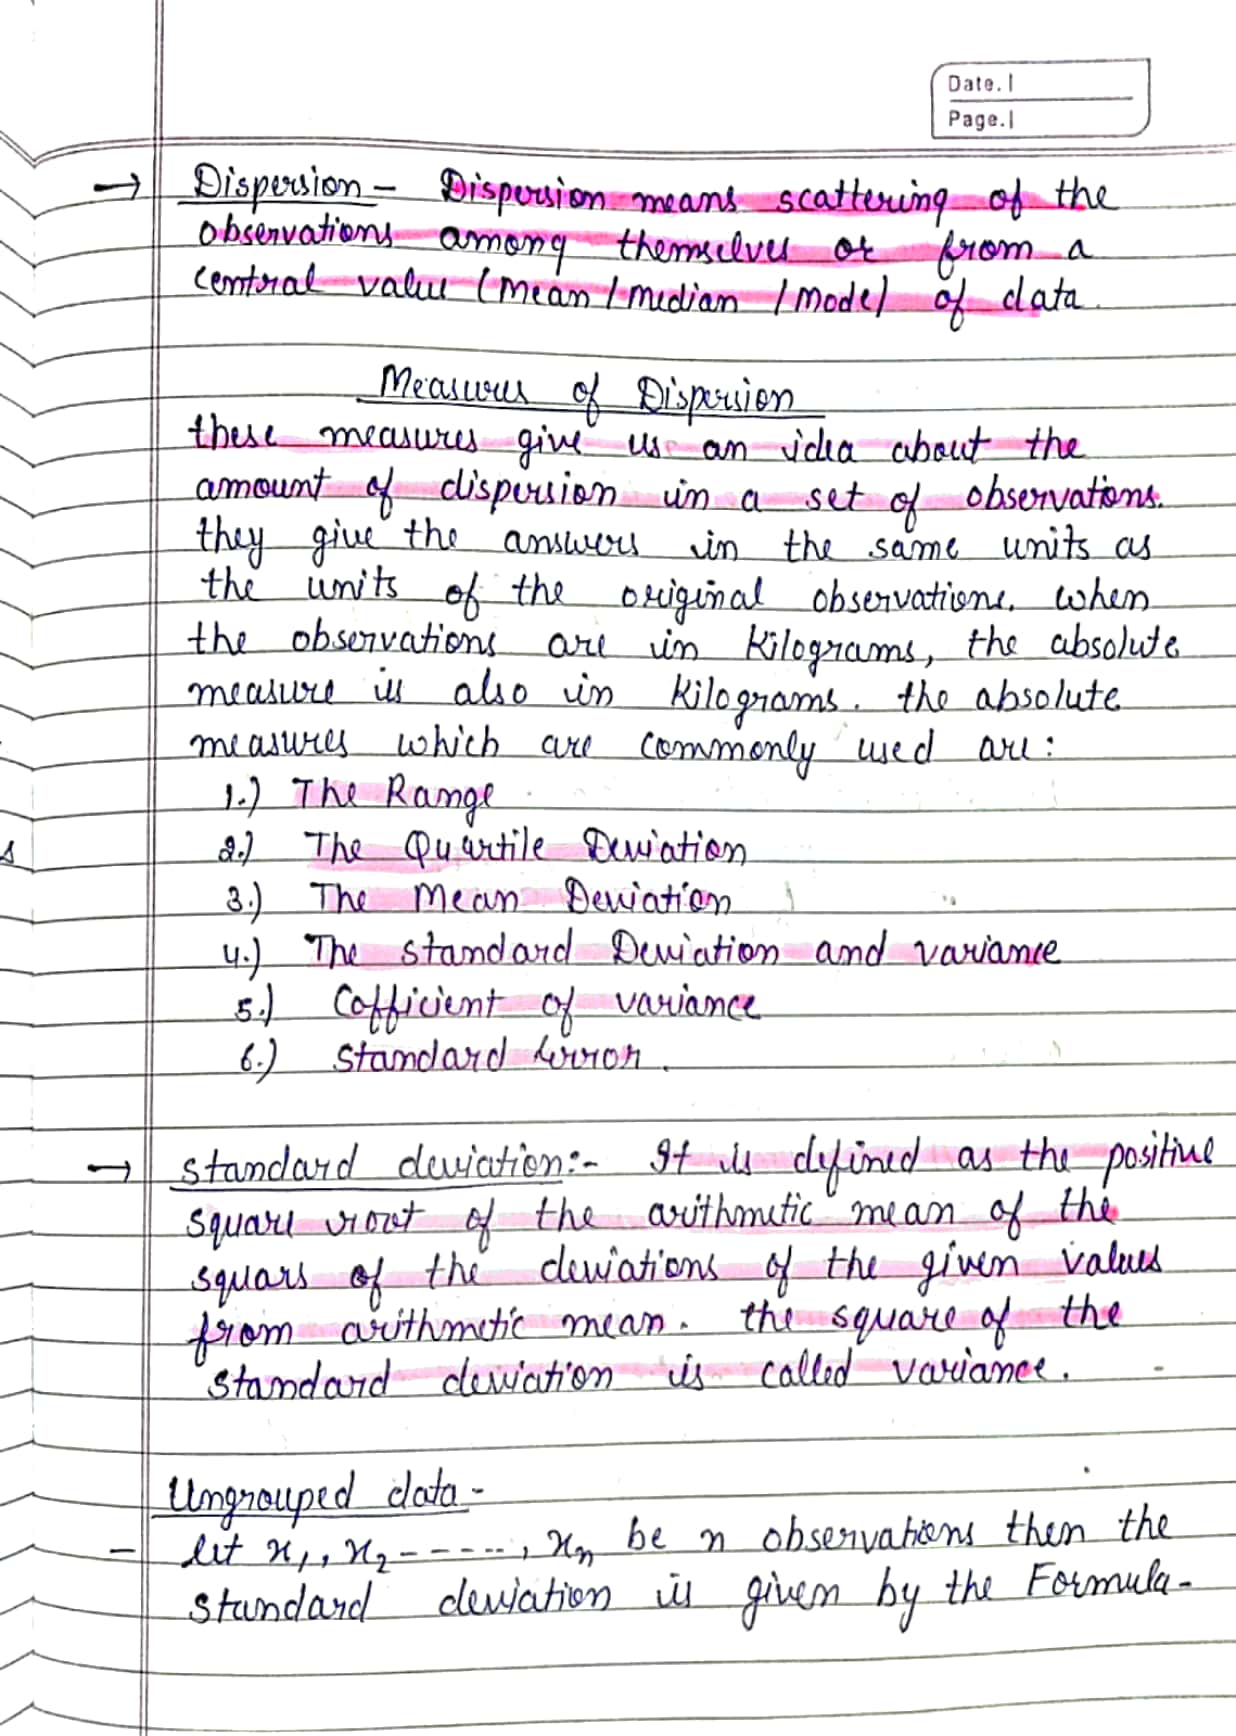 Date.
Page.
→ Dispersion - Dispersion means scattering of the
observations among themselves or from a
central value (Mean / median / Mode) of data.
Measures of Dispersion
these measures give us an idea about the
amount of dispersion in a set of observations.
they give the answers in the same units as
the units of the original observations. when
the observations are in Kilograms, the absolute
measure is also in Kilograms. the absolute
measures which are commonly used are:
1.) The Range
2.) The Quartile Deviation
3.) The Mean Deviation
4.) The standard Deviation and variance
5.) Cofficient of variance
6.) Standard Error.
→ Standard deviation:- It is defined as the positive
square root of the arithmetic mean of the
squars of the deviations of the given values
from arithmetic mean. the square of the
standard deviation is called variance.
Ungrouped data -
- let x1, x2 -----, xn be n observations then the
standard deviation is given by the Formula-
s